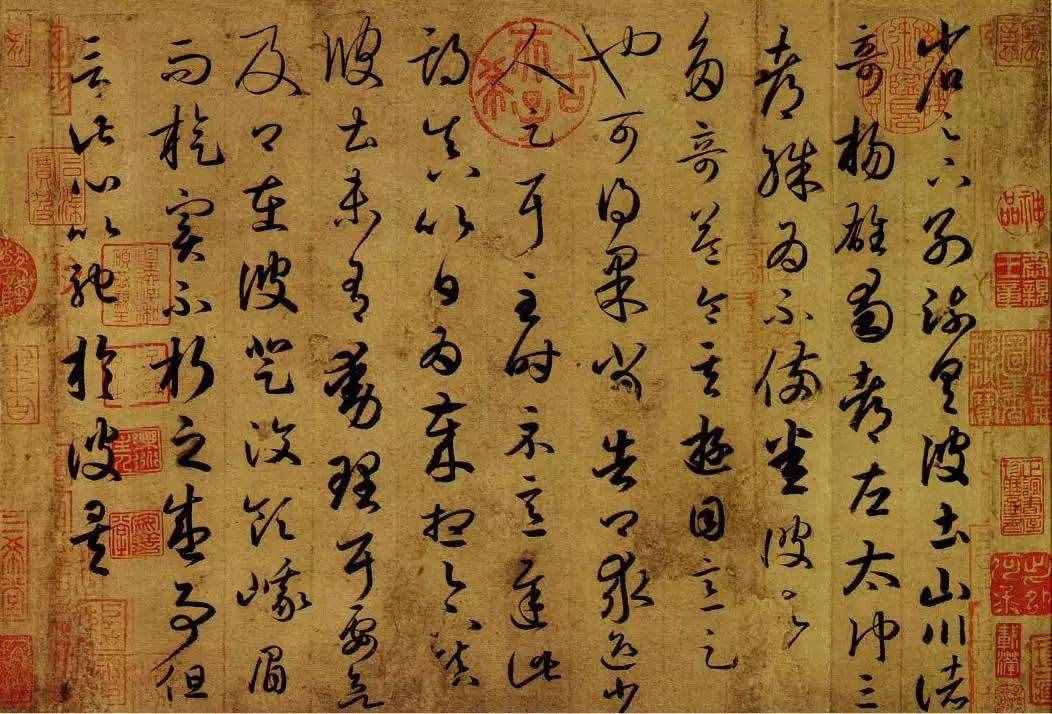 省足下別疏具彼土山川諸
奇楊雄蜀都左太沖三
都殊為不備悉彼故為
多奇益令其遊目意足
也可得果當告卿求迎少
人足耳至時示意遲此
期真以日為歲想足下鎮
彼土未有動理耳要欲
及卿在彼登汶領峨眉
而旋實不朽之盛事但
言此心以馳於彼矣
神品
恭親王章
古希天子